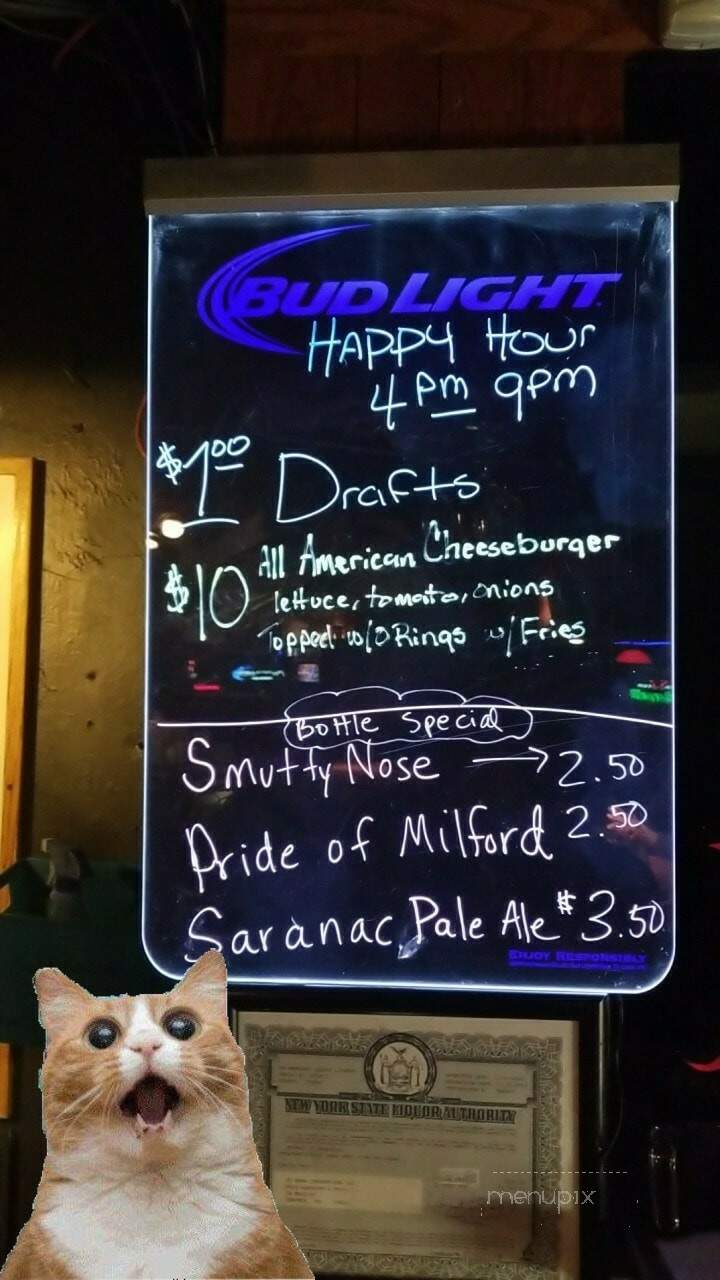 BUD LIGHT
HAPPY HOUR
4 PM 9PM
$1.00 Drafts
$10 All American Cheeseburger
lettuce, tomato, onions
Topped w/ O Rings w/ Fries
Bottle Special
Smutty Nose → 2.50
Pride of Milford 2.50
Saranac Pale Ale $3.50
ENJOY RESPONSIBLY
NEW YORK STATE LIQUOR AUTHORITY
menupix